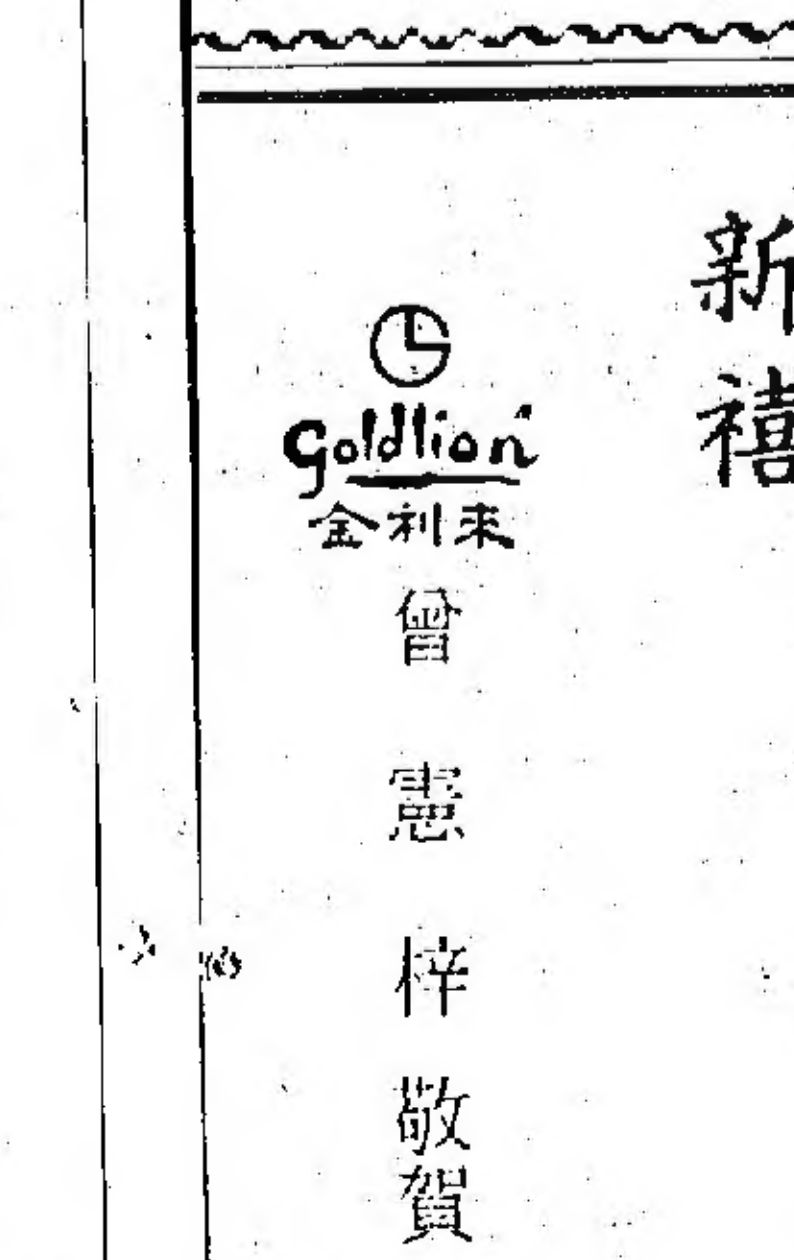 新禧
Goldlion
金利來
曾憲梓敬賀